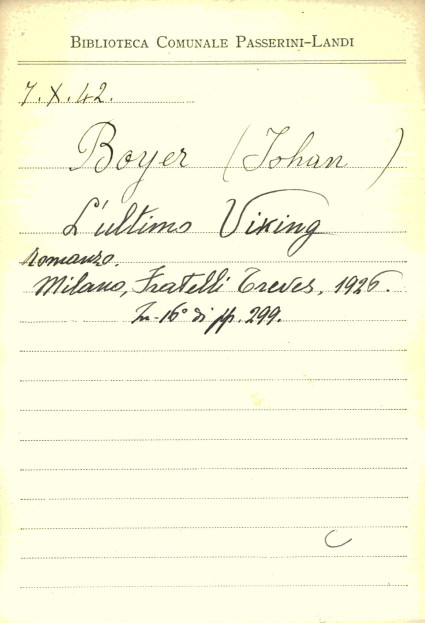 BIBLIOTECA COMUNALE PASSERINI-LANDI
7. X. 42.
Boyer (Johan)
L'ultimo Viking
romanzo.
Milano, Fratelli Treves, 1926.
In-16° di pp. 299.